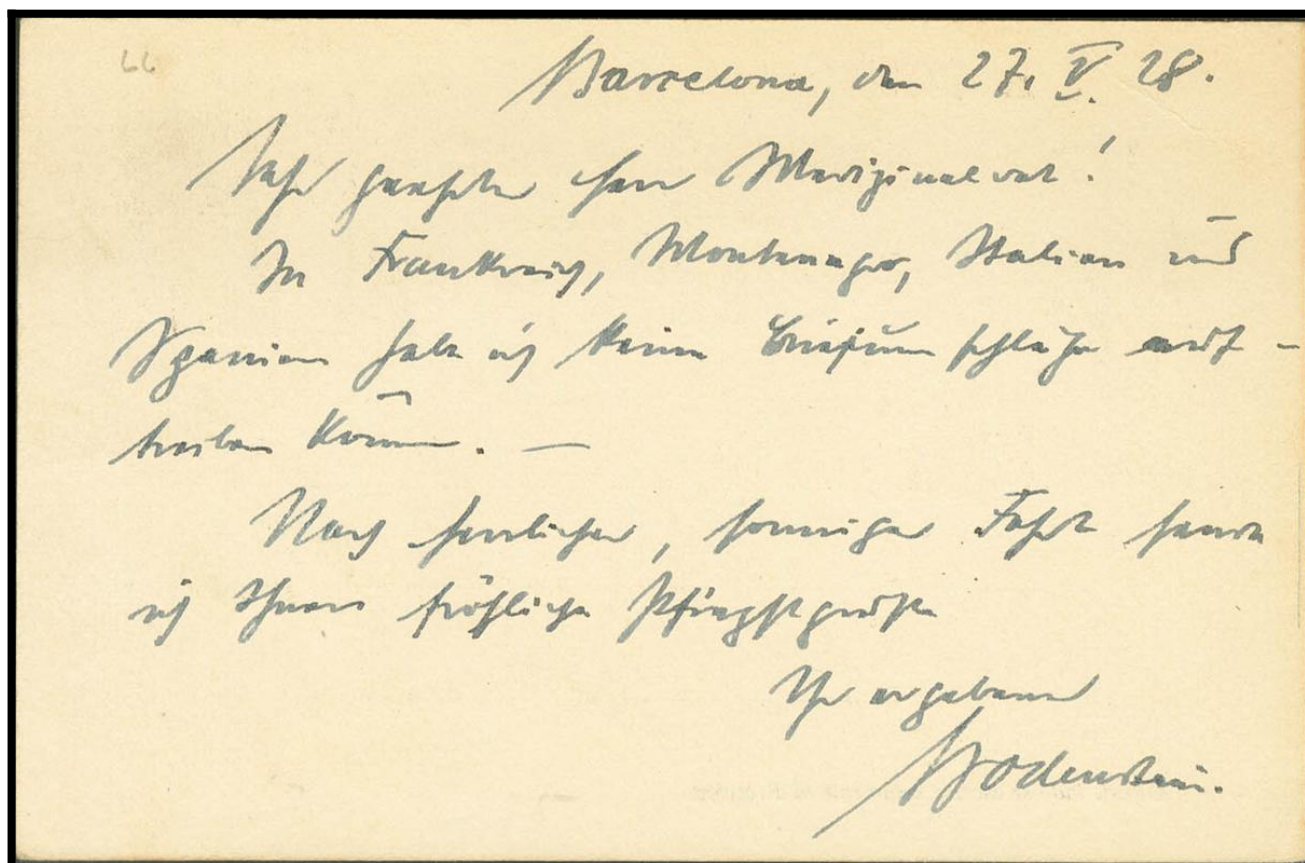 66
Barcelona, den 27. V. 28.
Sehr geehrter Herr Medizinalrat!
In Frankreich, Montenegro, Italien und
Spanien habe ich keine Briefumschläge auf-
treiben können. —
Nach herrlicher, sonniger Fahrt sende
ich Ihnen fröhliche Pfingstgrüße
Ihr ergebener
Bodenstein.